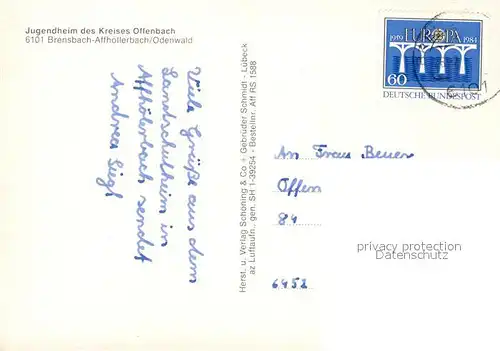 Jugendheim des Kreises Offenbach
6101 Brensbach-Affhollerbach/Odenwald
Viele Grüße aus dem
Landschulheim in
Affhölerbach sendet
Andrea Siegl
Herst. u. Verlag Schöning & Co + Gebrüder Schmidt - Lübeck
az Luftaufn., gen. SH 1-39254 - Bestellnr. Aff RS 1588
1959 EUROPA 1984
60
DEUTSCHE BUNDESPOST
6101
An Frau Beuer
Offen
84
6452
privacy protection
Datenschutz